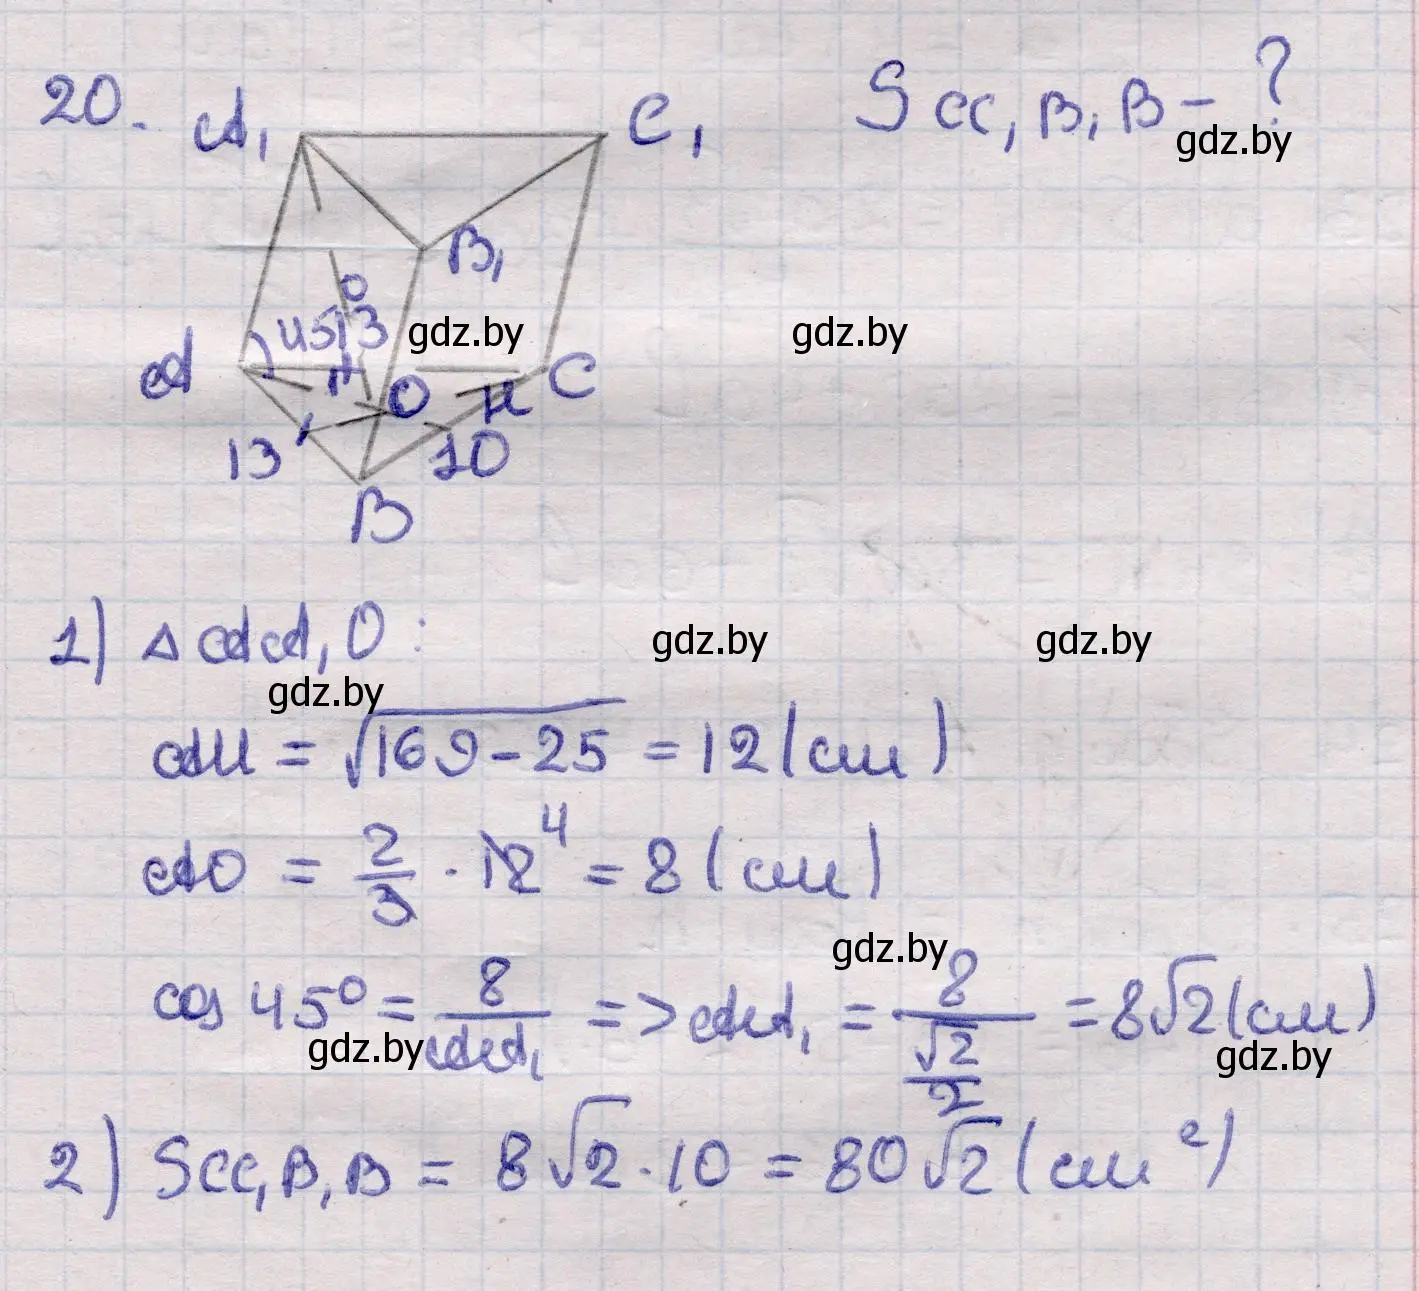 20.
A₁ C₁ S CC₁B₁B - ?
gdz.by
B₁
45° 13 gdz.by gdz.by
A O C
13 10
B
1) △ AA₁O : gdz.by gdz.by
gdz.by
AM = √169-25 = 12 (см)
AO = 2/3 · 12 ⁴ = 8 (см)
gdz.by
cos 45° = 8/AA₁ => AA₁ = 8/(√2/2) = 8√2 (см)
gdz.by gdz.by
2) SCC₁B₁B = 8√2 · 10 = 80√2 (см²)